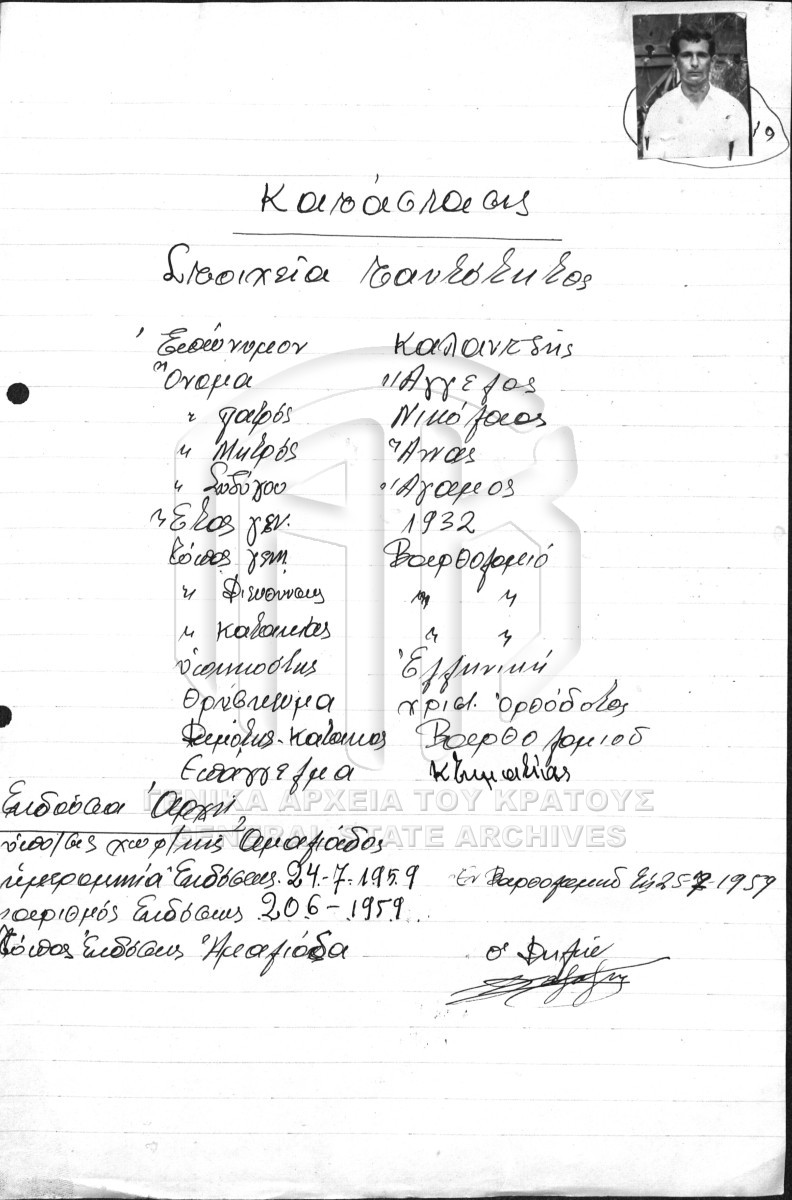 19
Κατάστασις
Στοιχεία ταυτότητος
Επώνυμον Καλαντζής
Όνομα Άγγελος
〃 πατρός Νικόλαος
〃 Μητρός Άννας
〃 Συζύγου Άγαμος
Έτος γεν. 1932
τόπος γεν. Βαρθολομιό
〃 Διευθύνσεις 〃 〃
〃 Κατοικίας 〃 〃
υπηκοότης Ελληνική
Θρήσκευμα χριστ. Ορθόδοξος
Δημότης - Κάτοικος Βαρθολομιού
Επάγγελμα Κτηματίας
ΓΕΝΙΚΑ ΑΡΧΕΙΑ ΤΟΥ ΚΡΑΤΟΥΣ
Εκδούσα Αρχή
GENERAL STATE ARCHIVES
υποδ/σις χωρ/κής Αμαλιάδος
ημερομηνία Εκδόσεως 24-7-1959
Εν Βαρθολομιώ τη 25-7-1959
αριθμός Εκδόσεως 206-1959
τόπος Εκδόσεως Αμαλιάδα
ο Δηλών